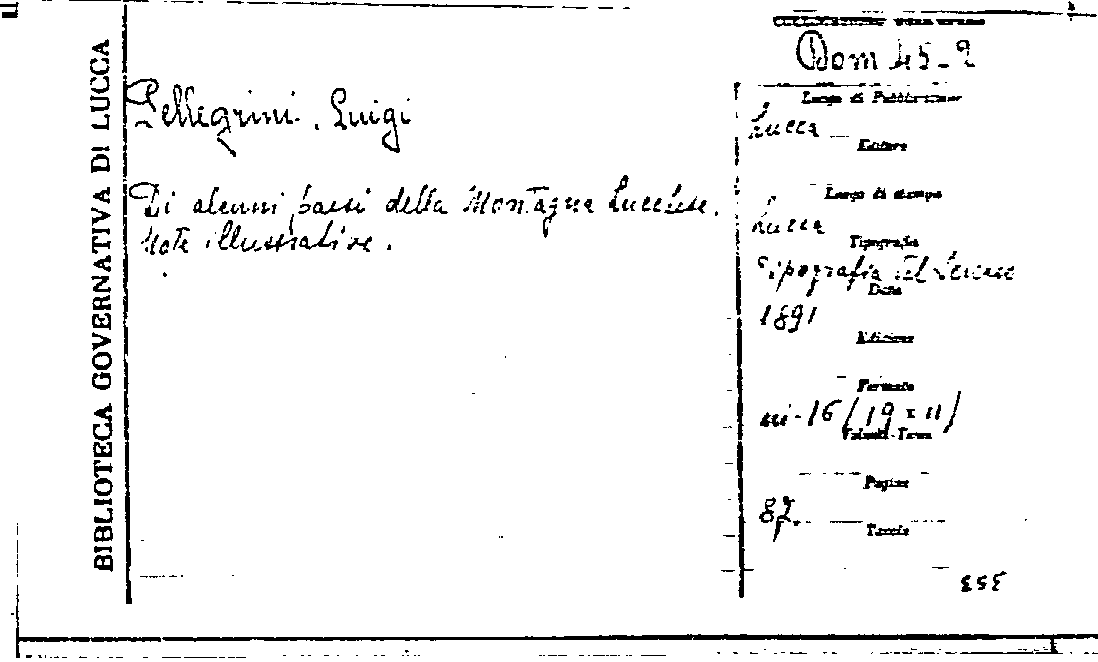 BIBLIOTECA GOVERNATIVA DI LUCCA
Pellegrini, Luigi
Di alcuni paesi della Montagna Lucchese.
Note illustrative.
Dom 45-2
Luogo di Pubblicazione
Lucca
Editore
Luogo di stampa
Lucca
Tipografia
Tipografia del Serchio
Data
1891
Edizione
Formato
in-16 (19 x 11)
Volumi-Tomi
Pagine
87.
Tavole